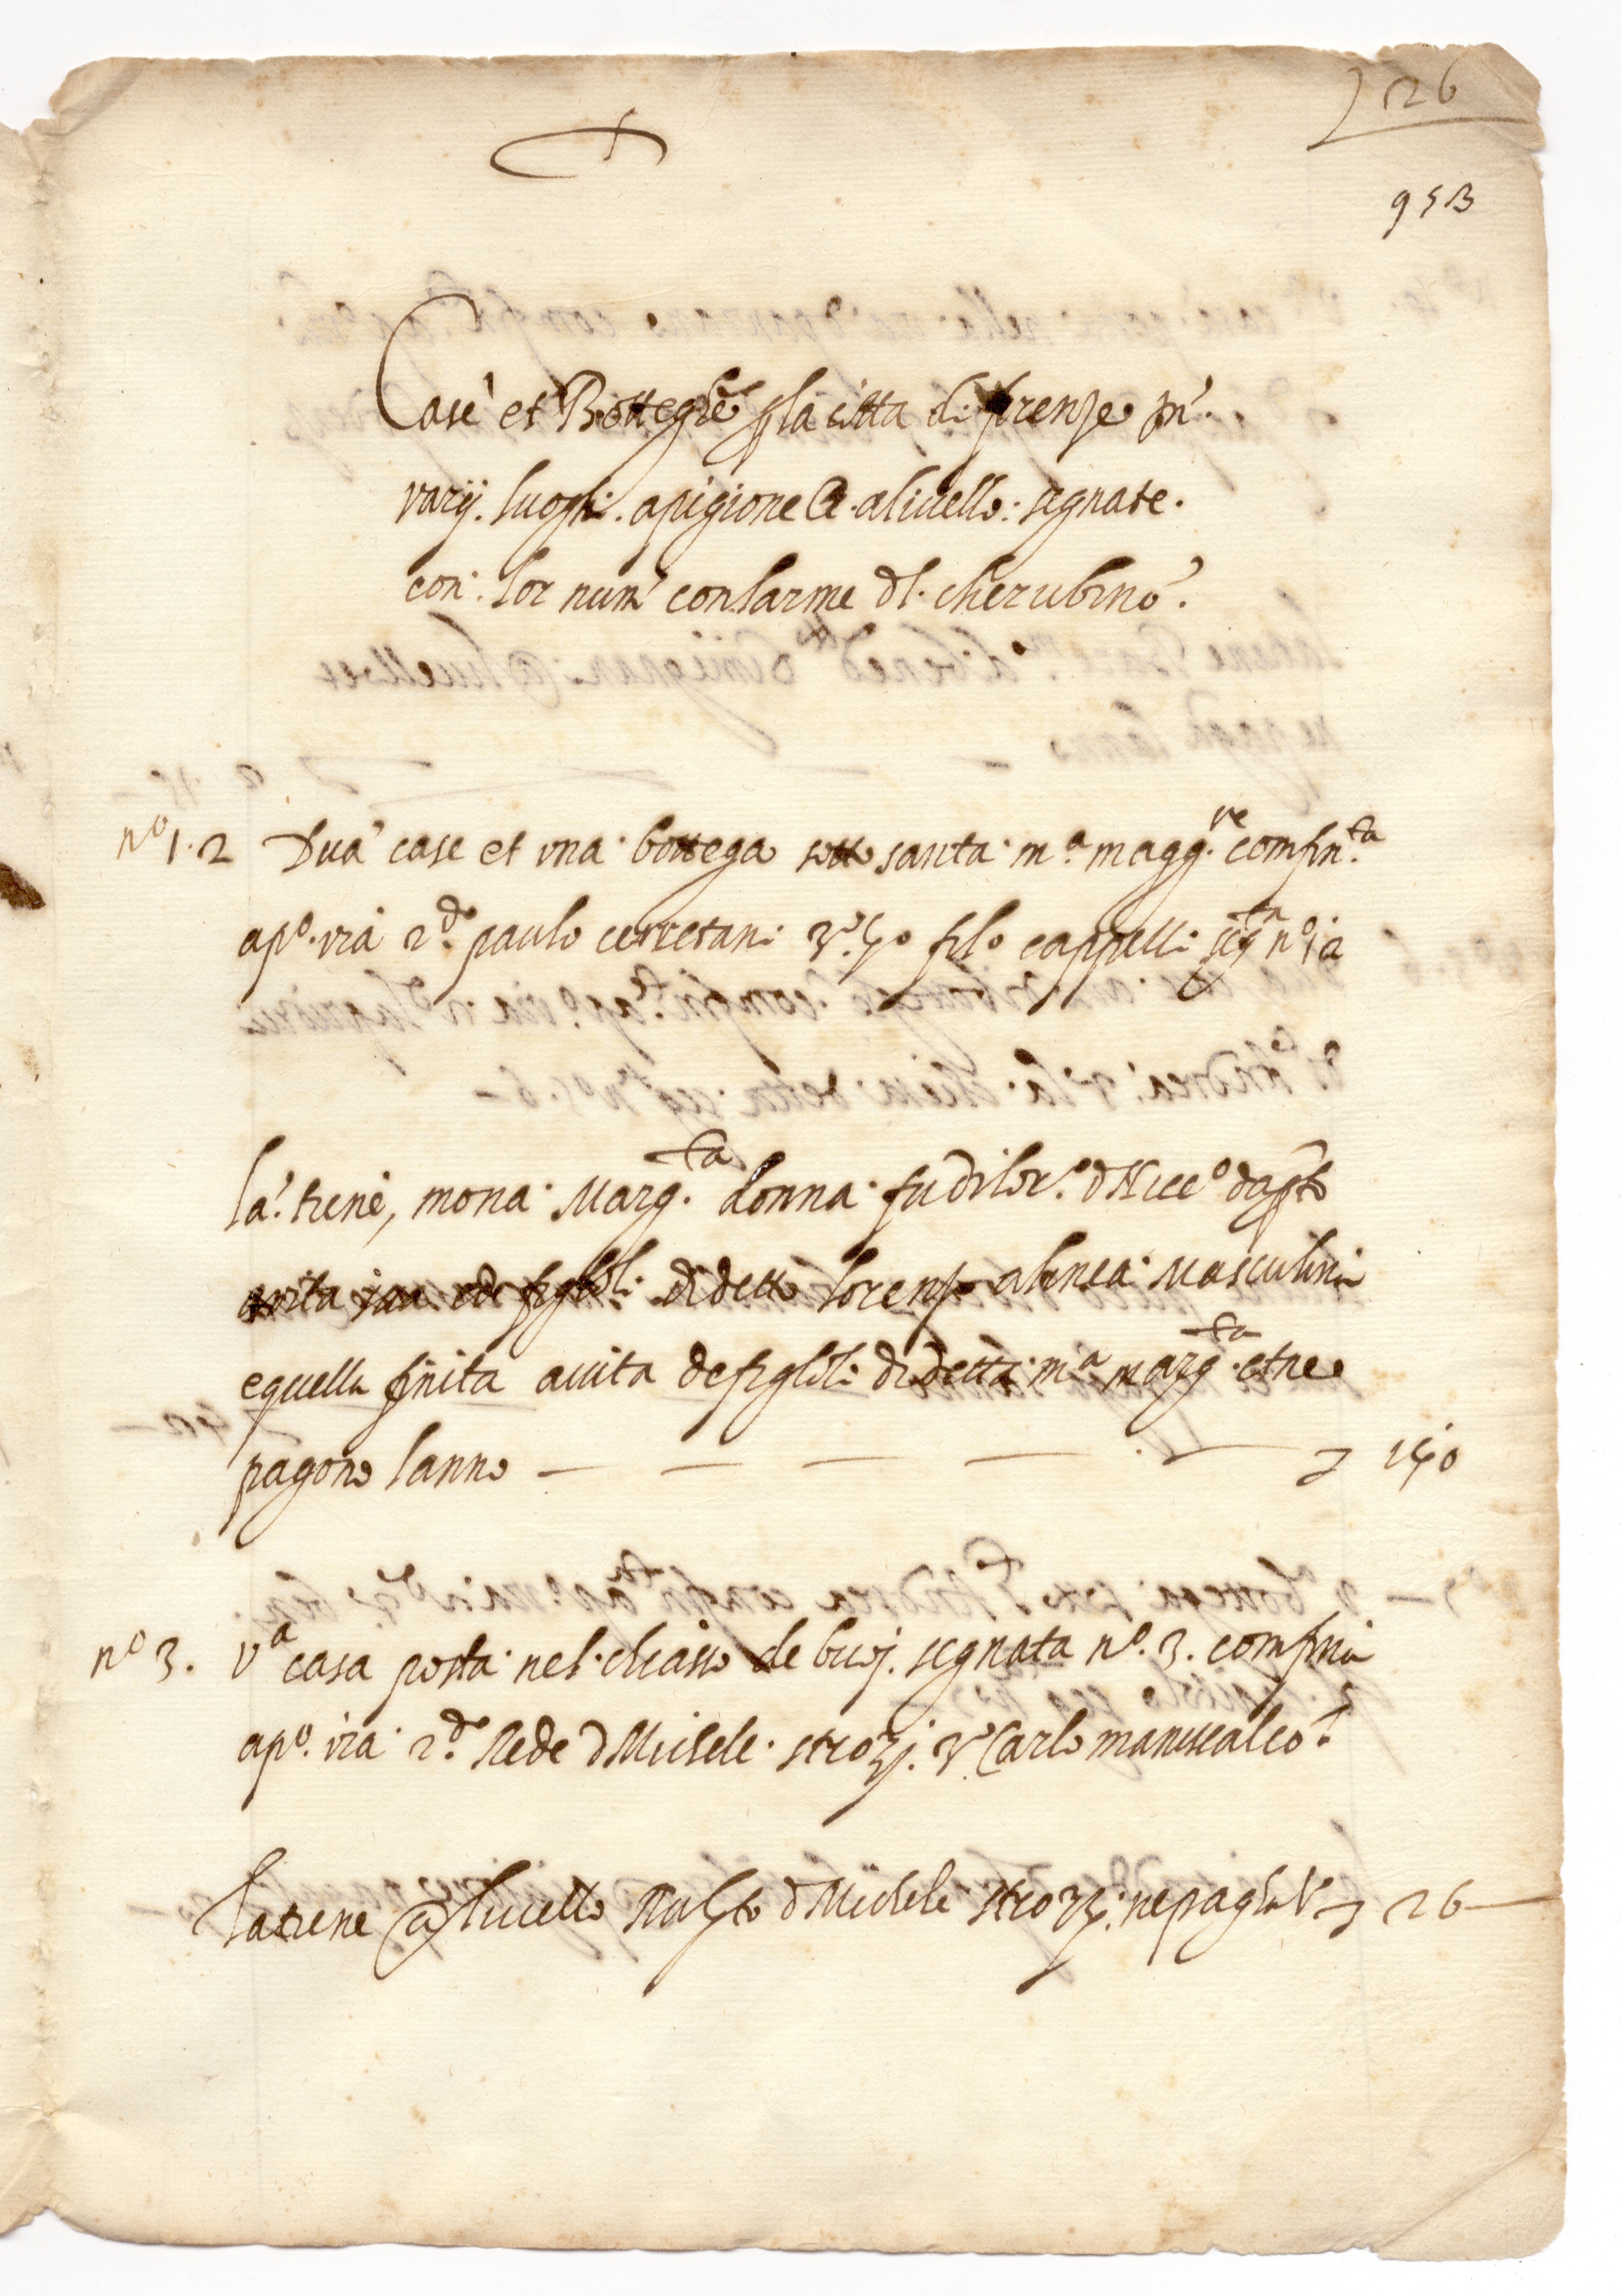 126
953
Case et Botteghe p la citta di firenze in
varij. luoghi. apigione @ alivello: segnate.
con: lor num conlarme dl. cherubino.
nº 1.2 Dua case et una bottega sotto santa mª. magg.re confin.ta
apº. via 2º. paulo cerretani 3º. filº cappelli seg.ta nº 1 2
la tiene, mona Marg.ta donna fu di lorº. d Niccº
avita de figloli di detto lorenzo alinea Masculina
equella finita avita de figloli di detta mª marg.ta etne
pagono lanno — — — — 140
nº 3. vª casa posta nel chiasso de buoj. segnata nº. 3. confina
apº. via 2º. Rede d Michele strozj. 3º Carlo maniscalco
latiene @ livello d Michele strozzi. nepagha 26 —